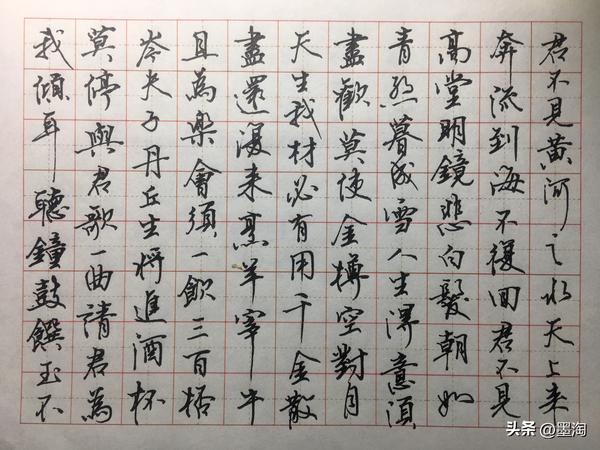 君不見黃河之水天上来
奔流到海不復回君不見
高堂明鏡悲白髮朝如
青丝暮成雪人生得意須
盡歡莫使金樽空對月
天生我材必有用千金散
盡還復来烹羊宰牛
且為樂會須一飲三百桮
岑夫子丹丘生将進酒杯
莫停與君歌一曲請君為
我傾耳聽鐘鼓饌玉不
头条 @墨淘